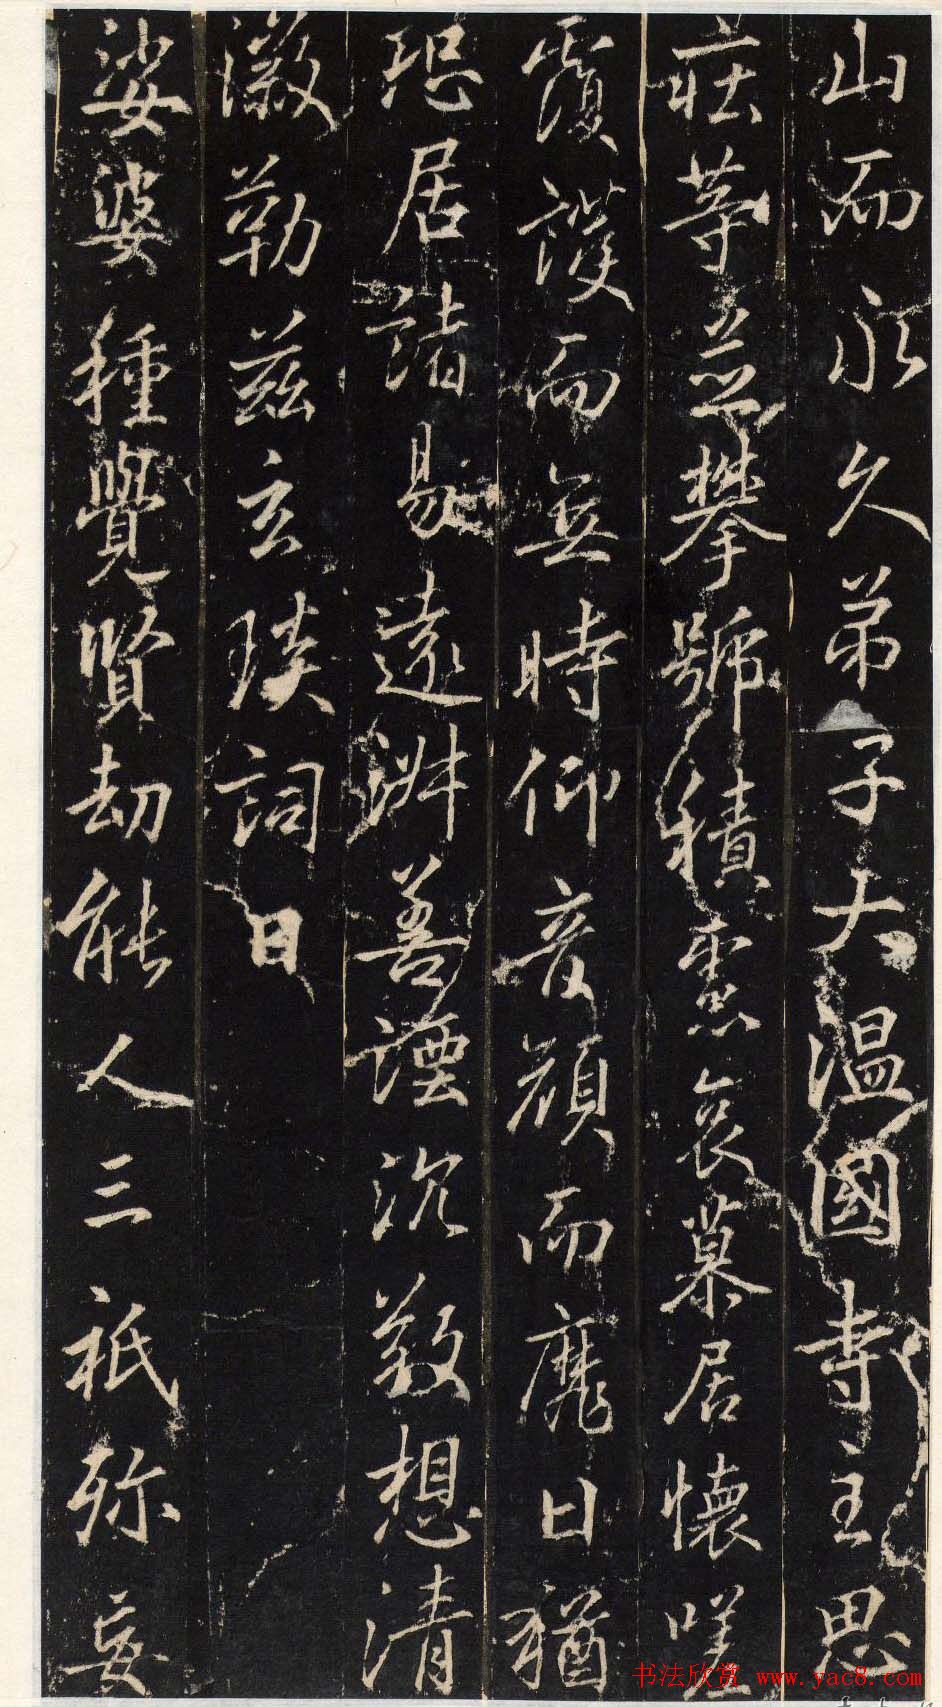 山而永久弟子大温國寺主思
莊等並攀號積慮哀慕居懷嗟
覆護而無時仰音顏而靡日猶
恐居諸易遠淑善諲沉敬想清
徽勒兹玄琰詞曰
娑婆種覺賢劫能人三祇弥妄
书法欣赏 www.yac8.com